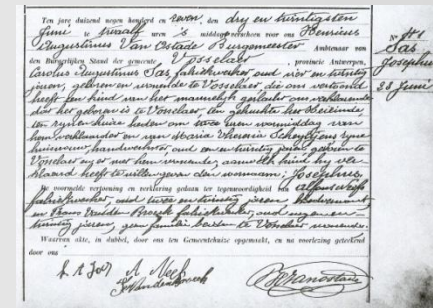 Ten jare duizend negen honderd en zeven, den dry en twintigsten
Juni te twaalf uren 's middags verscheen voor ons Henricus
Augustinus Van Ostade Burgemeester Ambtenaar van
den Burgerlijken Stand der gemeente Vosselaer, provincie Antwerpen,
Carolus Augustinus Sas, fabriekwerker, oud vier en twintig
jaren, geboren en wonende te Vosselaer, die ons vertoond
heeft een kind van het mannelijk geslacht, ons verklarende
dat het geboren is te Vosselaer
ten zijnen huize heden om twee uren voormiddag van
hem, verklaarder en van Maria Theresia zijne
huisvrouw, handwerkster, oud een en twintig jaren, geboren te
Vosselaer en er met hem wonende, aan welk kind hij ver-
klaard heeft te willen geven den voornaam: Josephus.
De voormelde vertooning en verklaring gedaan ter tegenwoordigheid van Alfons
fabriekwerker, oud twee en twintig jaren,
en Frans fabriekwerker, oud negen en
twintig jaren, geen familie te Vosselaer wonende.
Waarvan akte, in dubbel, door ons ten Gemeentehuize opgemaakt, en na voorlezing geteekend
door ons
Nº
Sas
Josephus
23 Juni